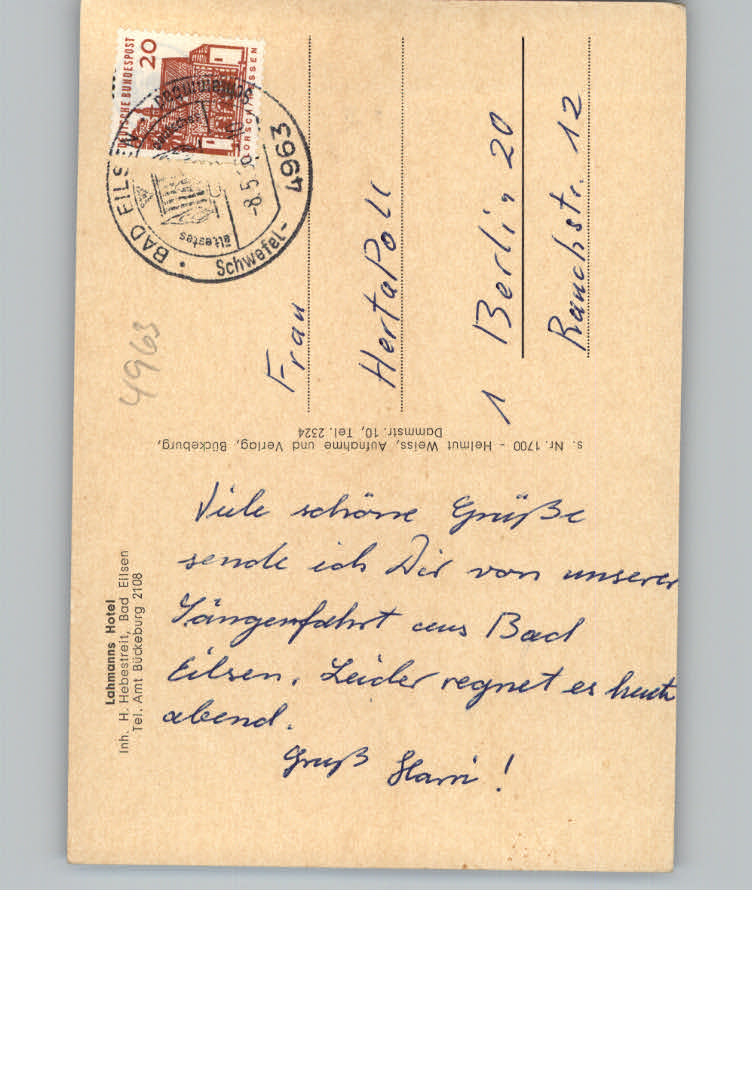 Lohmanns Hotel
Inh. H. Hebestreit, Bad Eilsen
Tel. Amt Bückeburg 2108
Viele schöne Grüße
sende ich Dir von unserer
Sängerfahrt aus Bad
Eilsen. Leider regnet es heute
abend.
Gruß Harri!
s. Nr. 1700 - Helmut Weiss, Aufnahme und Verlag, Bückeburg,
Dammstr. 10, Tel. 2324
DEUTSCHE BUNDESPOST
20
BAD EILSEN
4963
-8.5.
ältestes
Schwefel-
4963
Frau
Herta Poll
1 Berlin 20
Rauchstr. 12